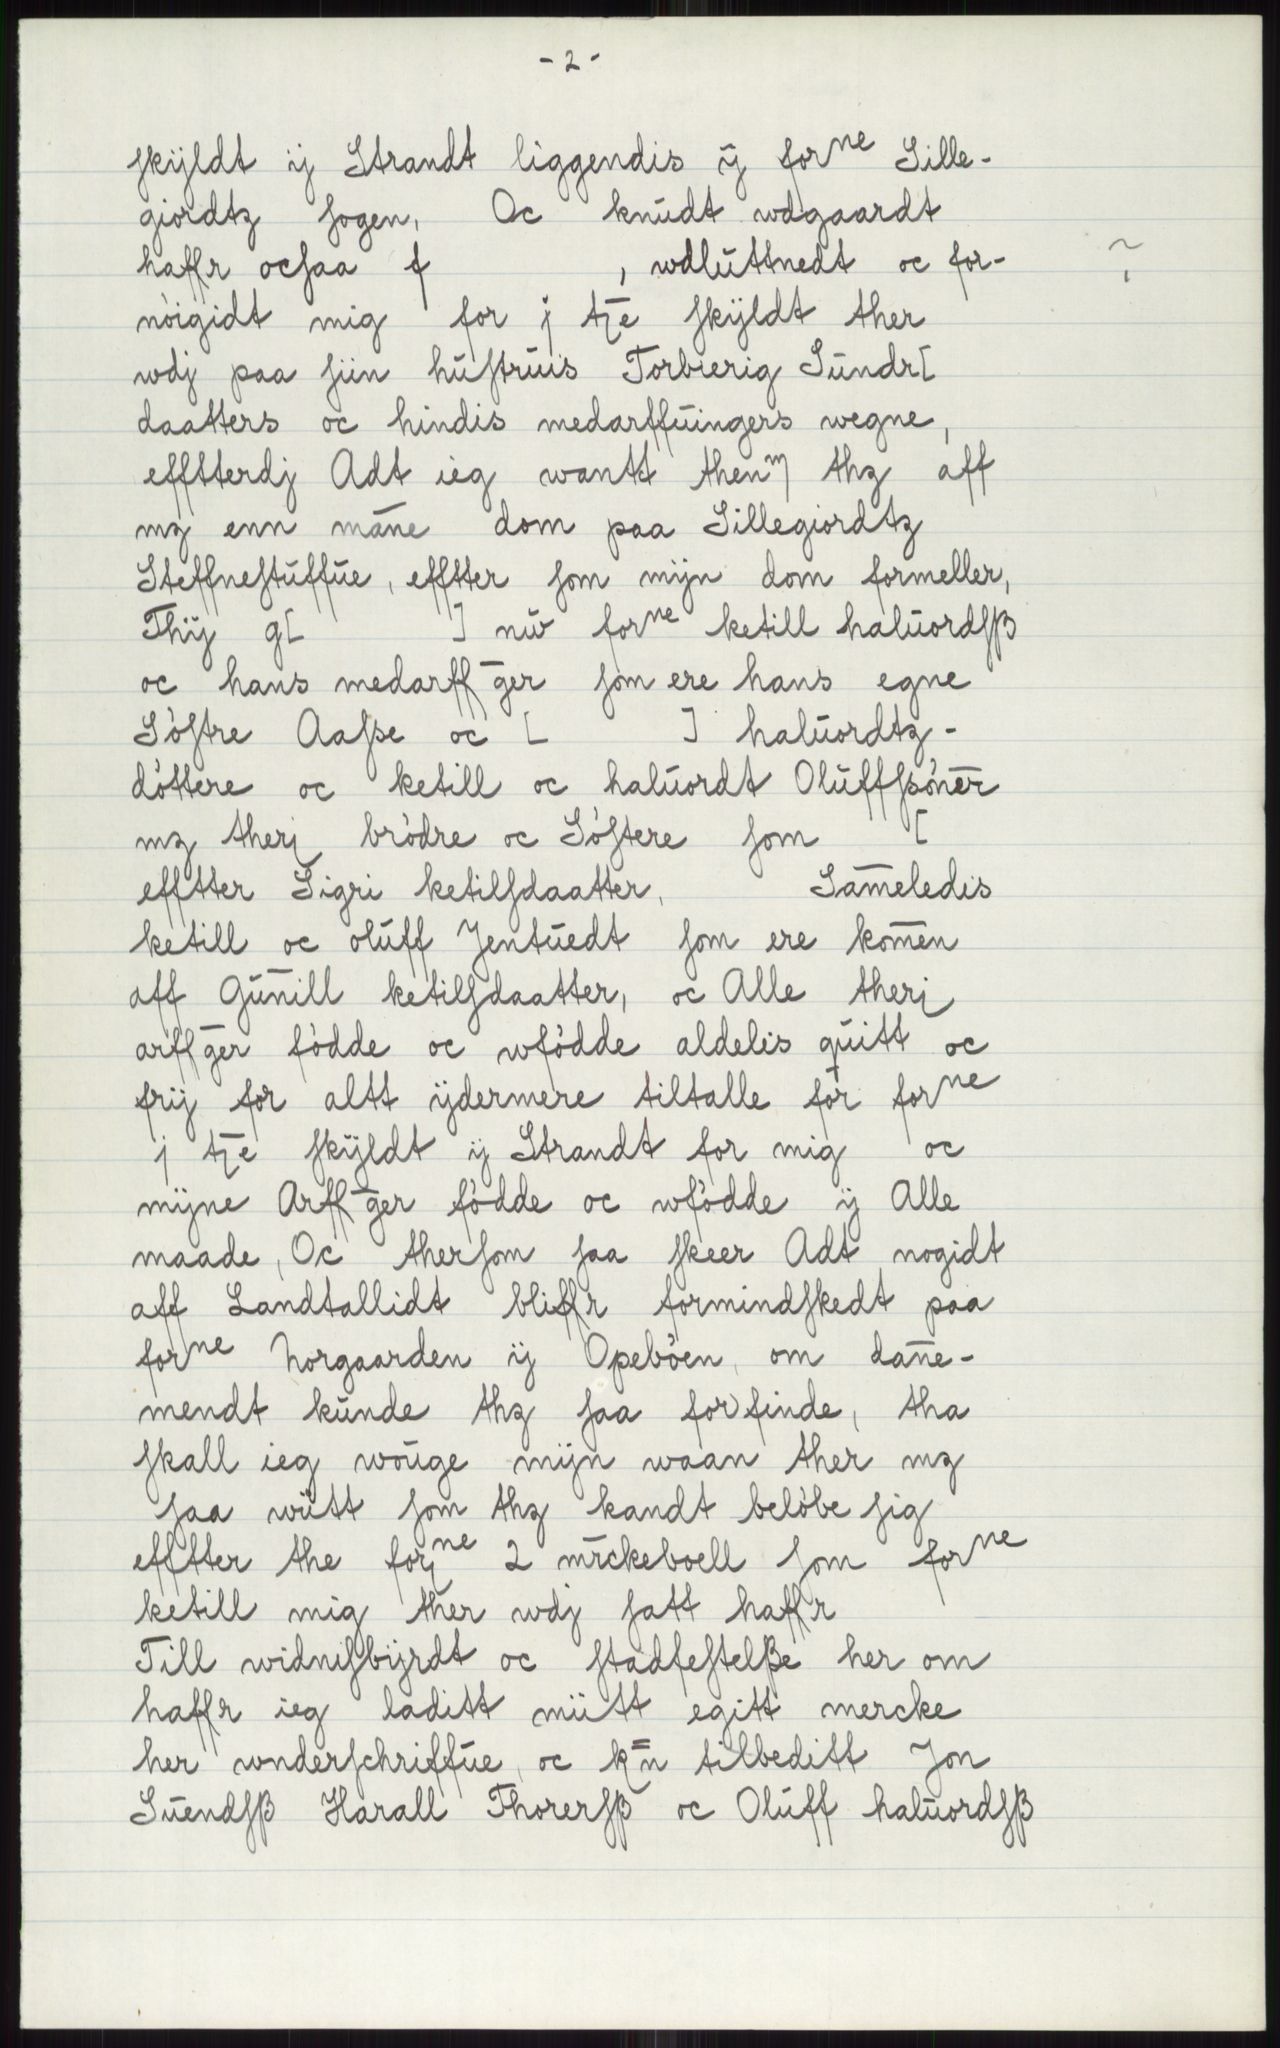 - 2 -
skÿldt ÿ Strandt liggendis ÿ forne Sille-
giordtz sogen, Oc knudt wdgaardt
haffr ocsaa f , wdluttnedt oc for- ?
nöigidt mig for j tz̄e skÿldt ther
wdj paa siin hustruis Torbierig Sundr[
daatters oc hindis medarffuingers wegne,
effterdj Adt ieg wantt thenm thz aff
mz enn māne dom paa Sillegiordtz
Steffnestuffue, effter som mÿn dom formeller,
Thÿ g[ ] nw forne ketill haluordsß
oc hans medarff̄ger som ere hans egne
Söstre Aasse oc [ ] haluordtz-
döttere oc ketill oc haluordt Oluffsönēr
mz therj brödre oc Söstere som [
effter Sigri ketilsdaatter, Sāmeledis
ketill oc oluff Jentuedt som ere komēn
aff Gūnill ketilsdaatter, oc Alle therj
arff̄ger födde oc wfödde aldelis quitt oc
frÿ for altt ÿdermere tiltalle for forne
j tz̄e skÿldt ÿ Strandt for mig oc
mÿne Arff̄ger födde oc wfödde ÿ Alle
maade, Oc thersom saa skeer Adt nogidt
aff Landtallidt bliffr formindskedt paa
forne Norgaarden ÿ Opeböen, om dāne-
mendt kunde thz saa forfinde, tha
skall ieg wouge mÿn waan ther mz
saa wiitt som thz kandt belöbe sig
effter the forjne 2 mrckeboell som forne
ketill mig ther wdj satt haffr
Till widnisbÿrdt oc stadfestelße her om
haffr ieg laditt miitt egitt mercke
her wnderschriffue, oc k̄n tilbeditt Jon
Suendsß Harall Thorersß oc Oluff haluordsß